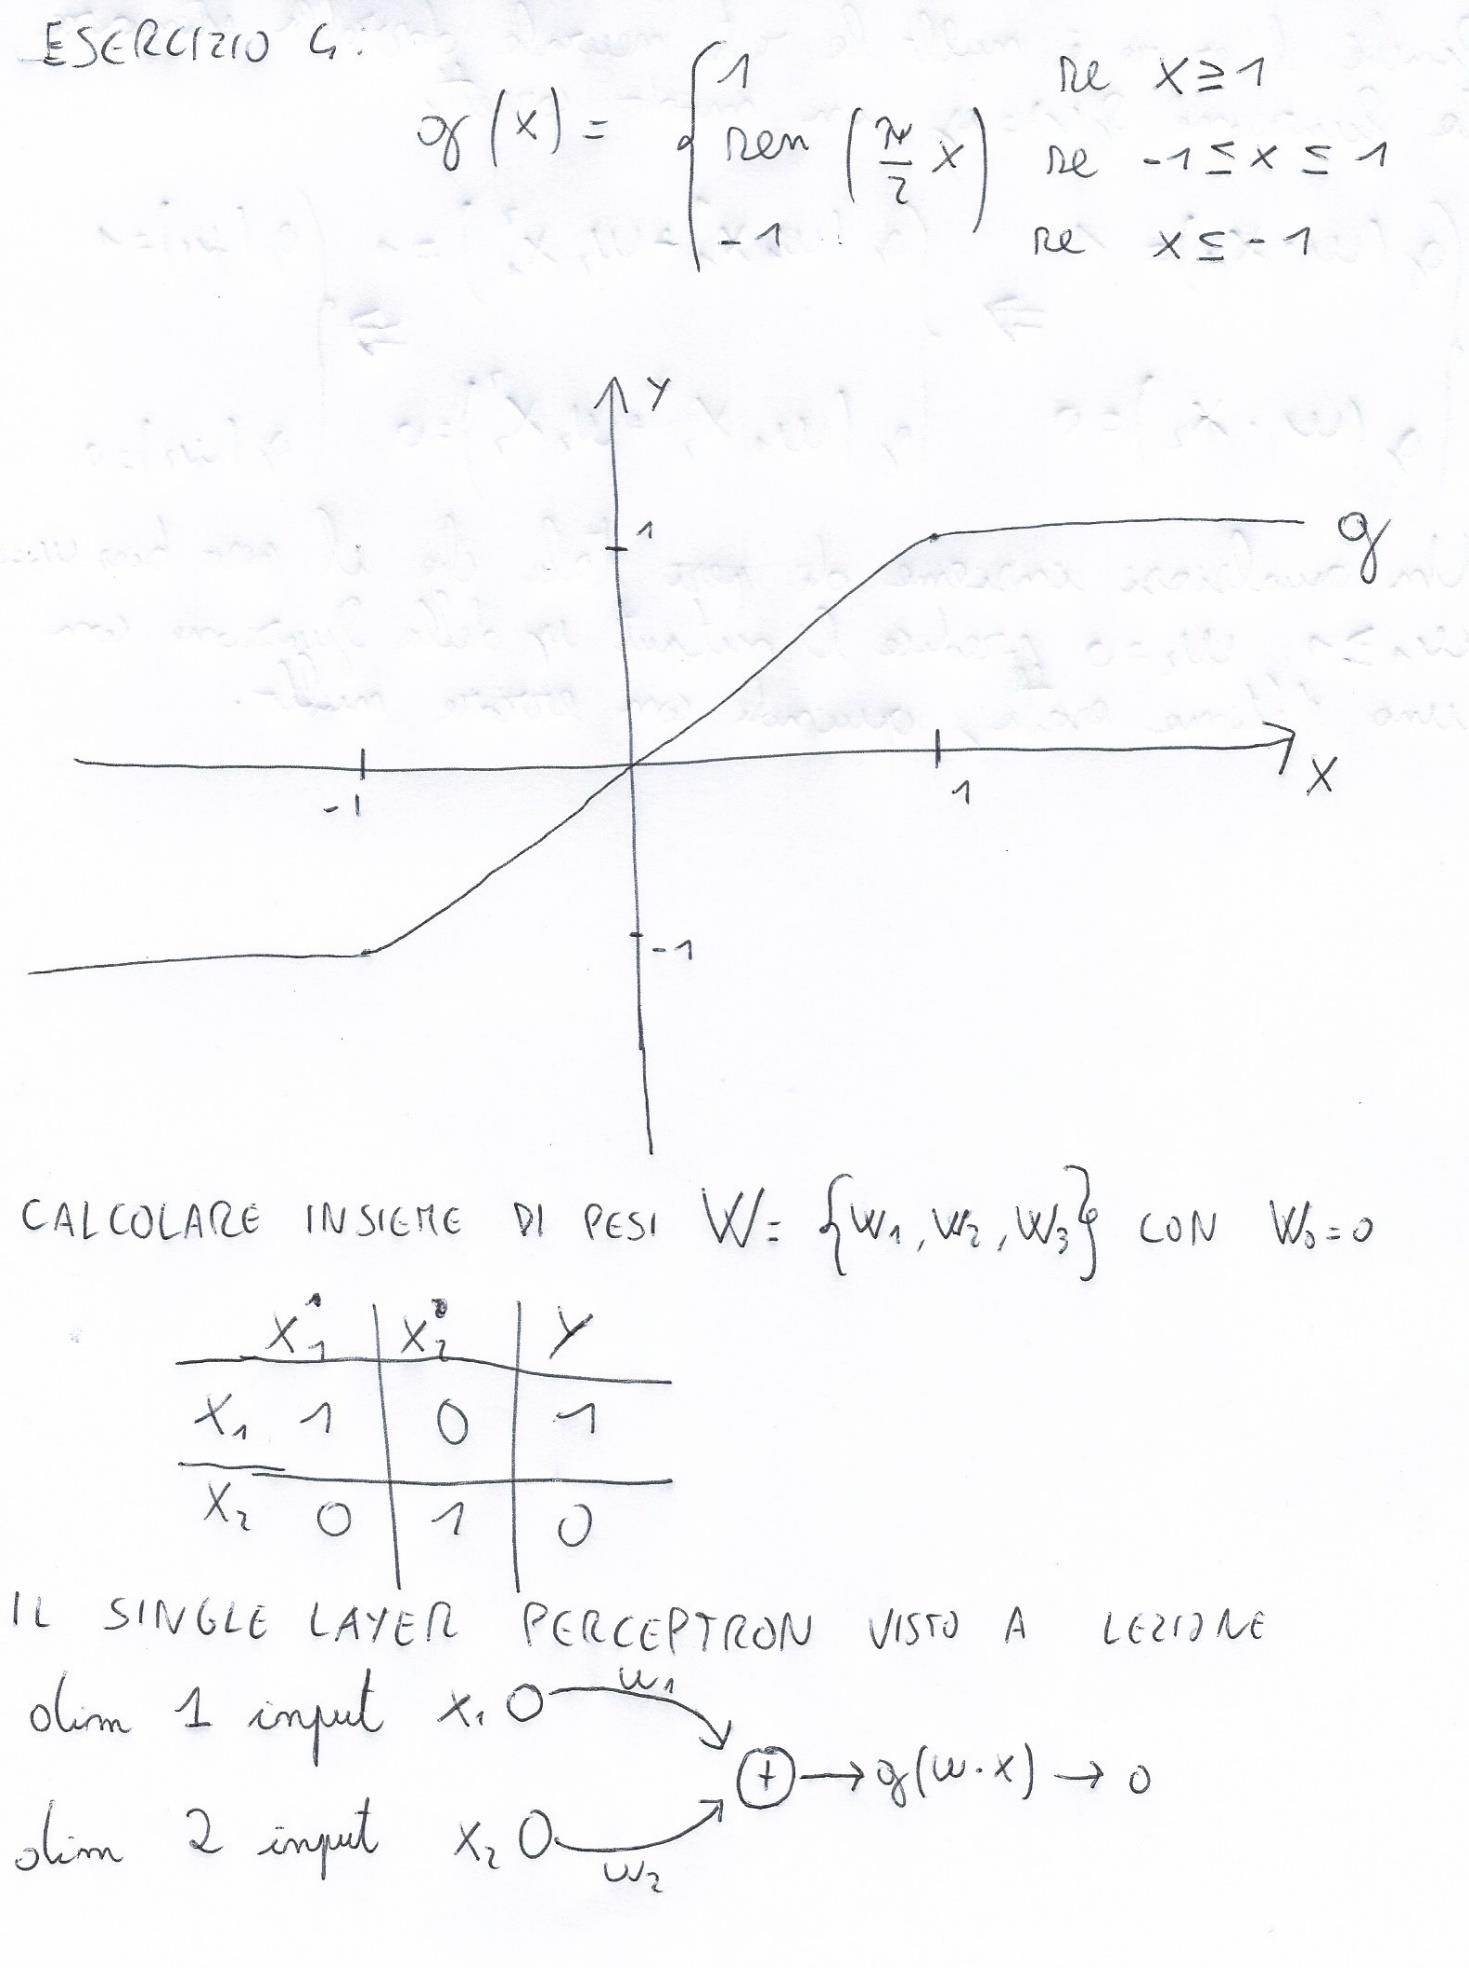 ESERCIZIO 4:
g(x) = { 1 se x ≥ 1
sen (π/2 x) se -1 ≤ x ≤ 1
-1 se x ≤ -1
y
1
g
-1 1 x
-1
CALCOLARE INSIEME DI PESI W = {W₁, W₂, W₃} CON W₀ = 0
X¹₁ X²₂ Y
X₁ 1 0 1
X₂ 0 1 0
IL SINGLE LAYER PERCEPTRON VISTO A LEZIONE
dim 1 input x₁ w₁
+ → g(w·x) → o
dim 2 input x₂ w₂